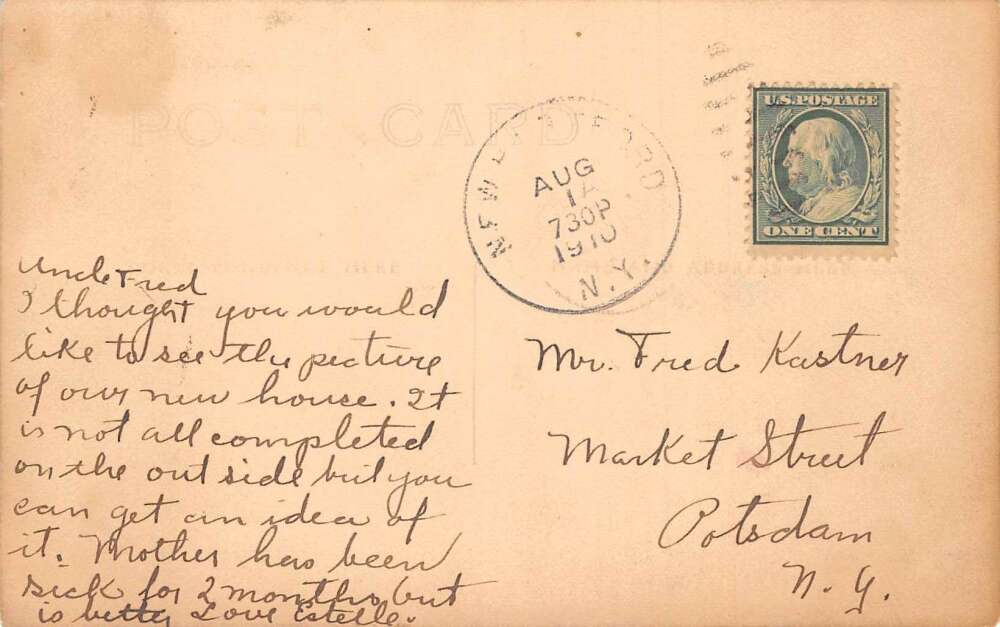 POST CARD
U.S. POSTAGE
ONE CENT
NEW HARTFORD
AUG
730P
1910
N.Y.
HERE
ADDRESS HERE
Uncle Fred
I thought you would
like to see the picture
of our new house. It
is not all completed
on the out side but you
can get an idea of
it. Mother has been
sick for 2 months but
is better Love Estelle.
Mr. Fred Kastner
Market Street
Potsdam
N.Y.